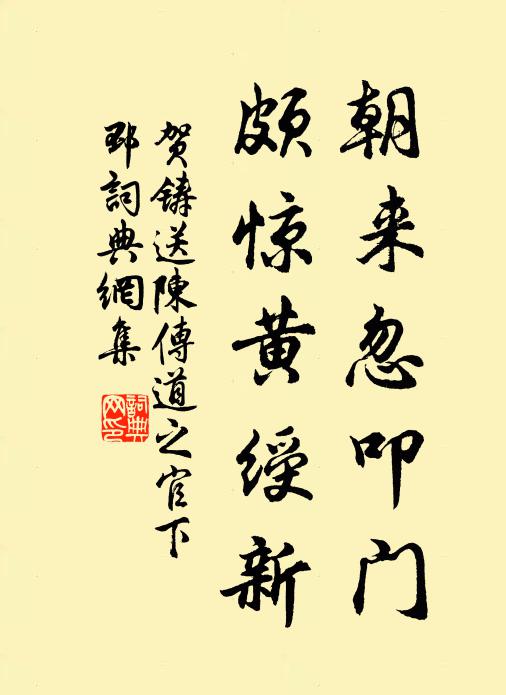 朝来忽叩门
颇惊黄绶新
贺鑄送陳傳道之官下
邳詞典網集
詞典网印